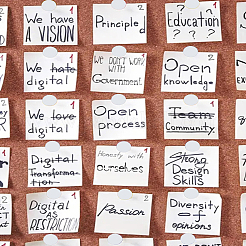 1
We have
A VISION
2
Principled
1
Education
? ? ?
1
We hate
digital
2
We don't work
with
Government
2
Open
knowledge
1
We love
digital
1
Open
process
2
Team
Community
1
Digital
Transforma-
tion
1
Honesty with
ourselves
2
Strong
Design
Skills
1
Digital
AS
RESTRICTION
2
Passion
2
Diversity
of
opinions